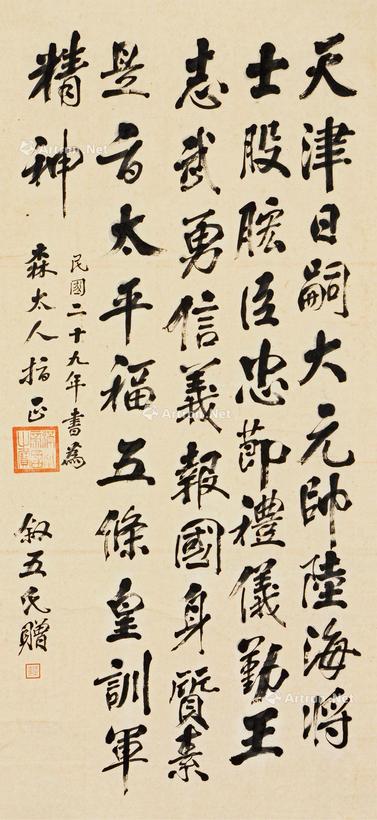 天津日嗣大元帥陸海將
士股肱臣忠節禮儀勤王
志武勇信義報國身質素
是旨太平福五條皇訓軍
精神
民國二十九年書為
森太人指正
叙五氏贈
Artron.Net